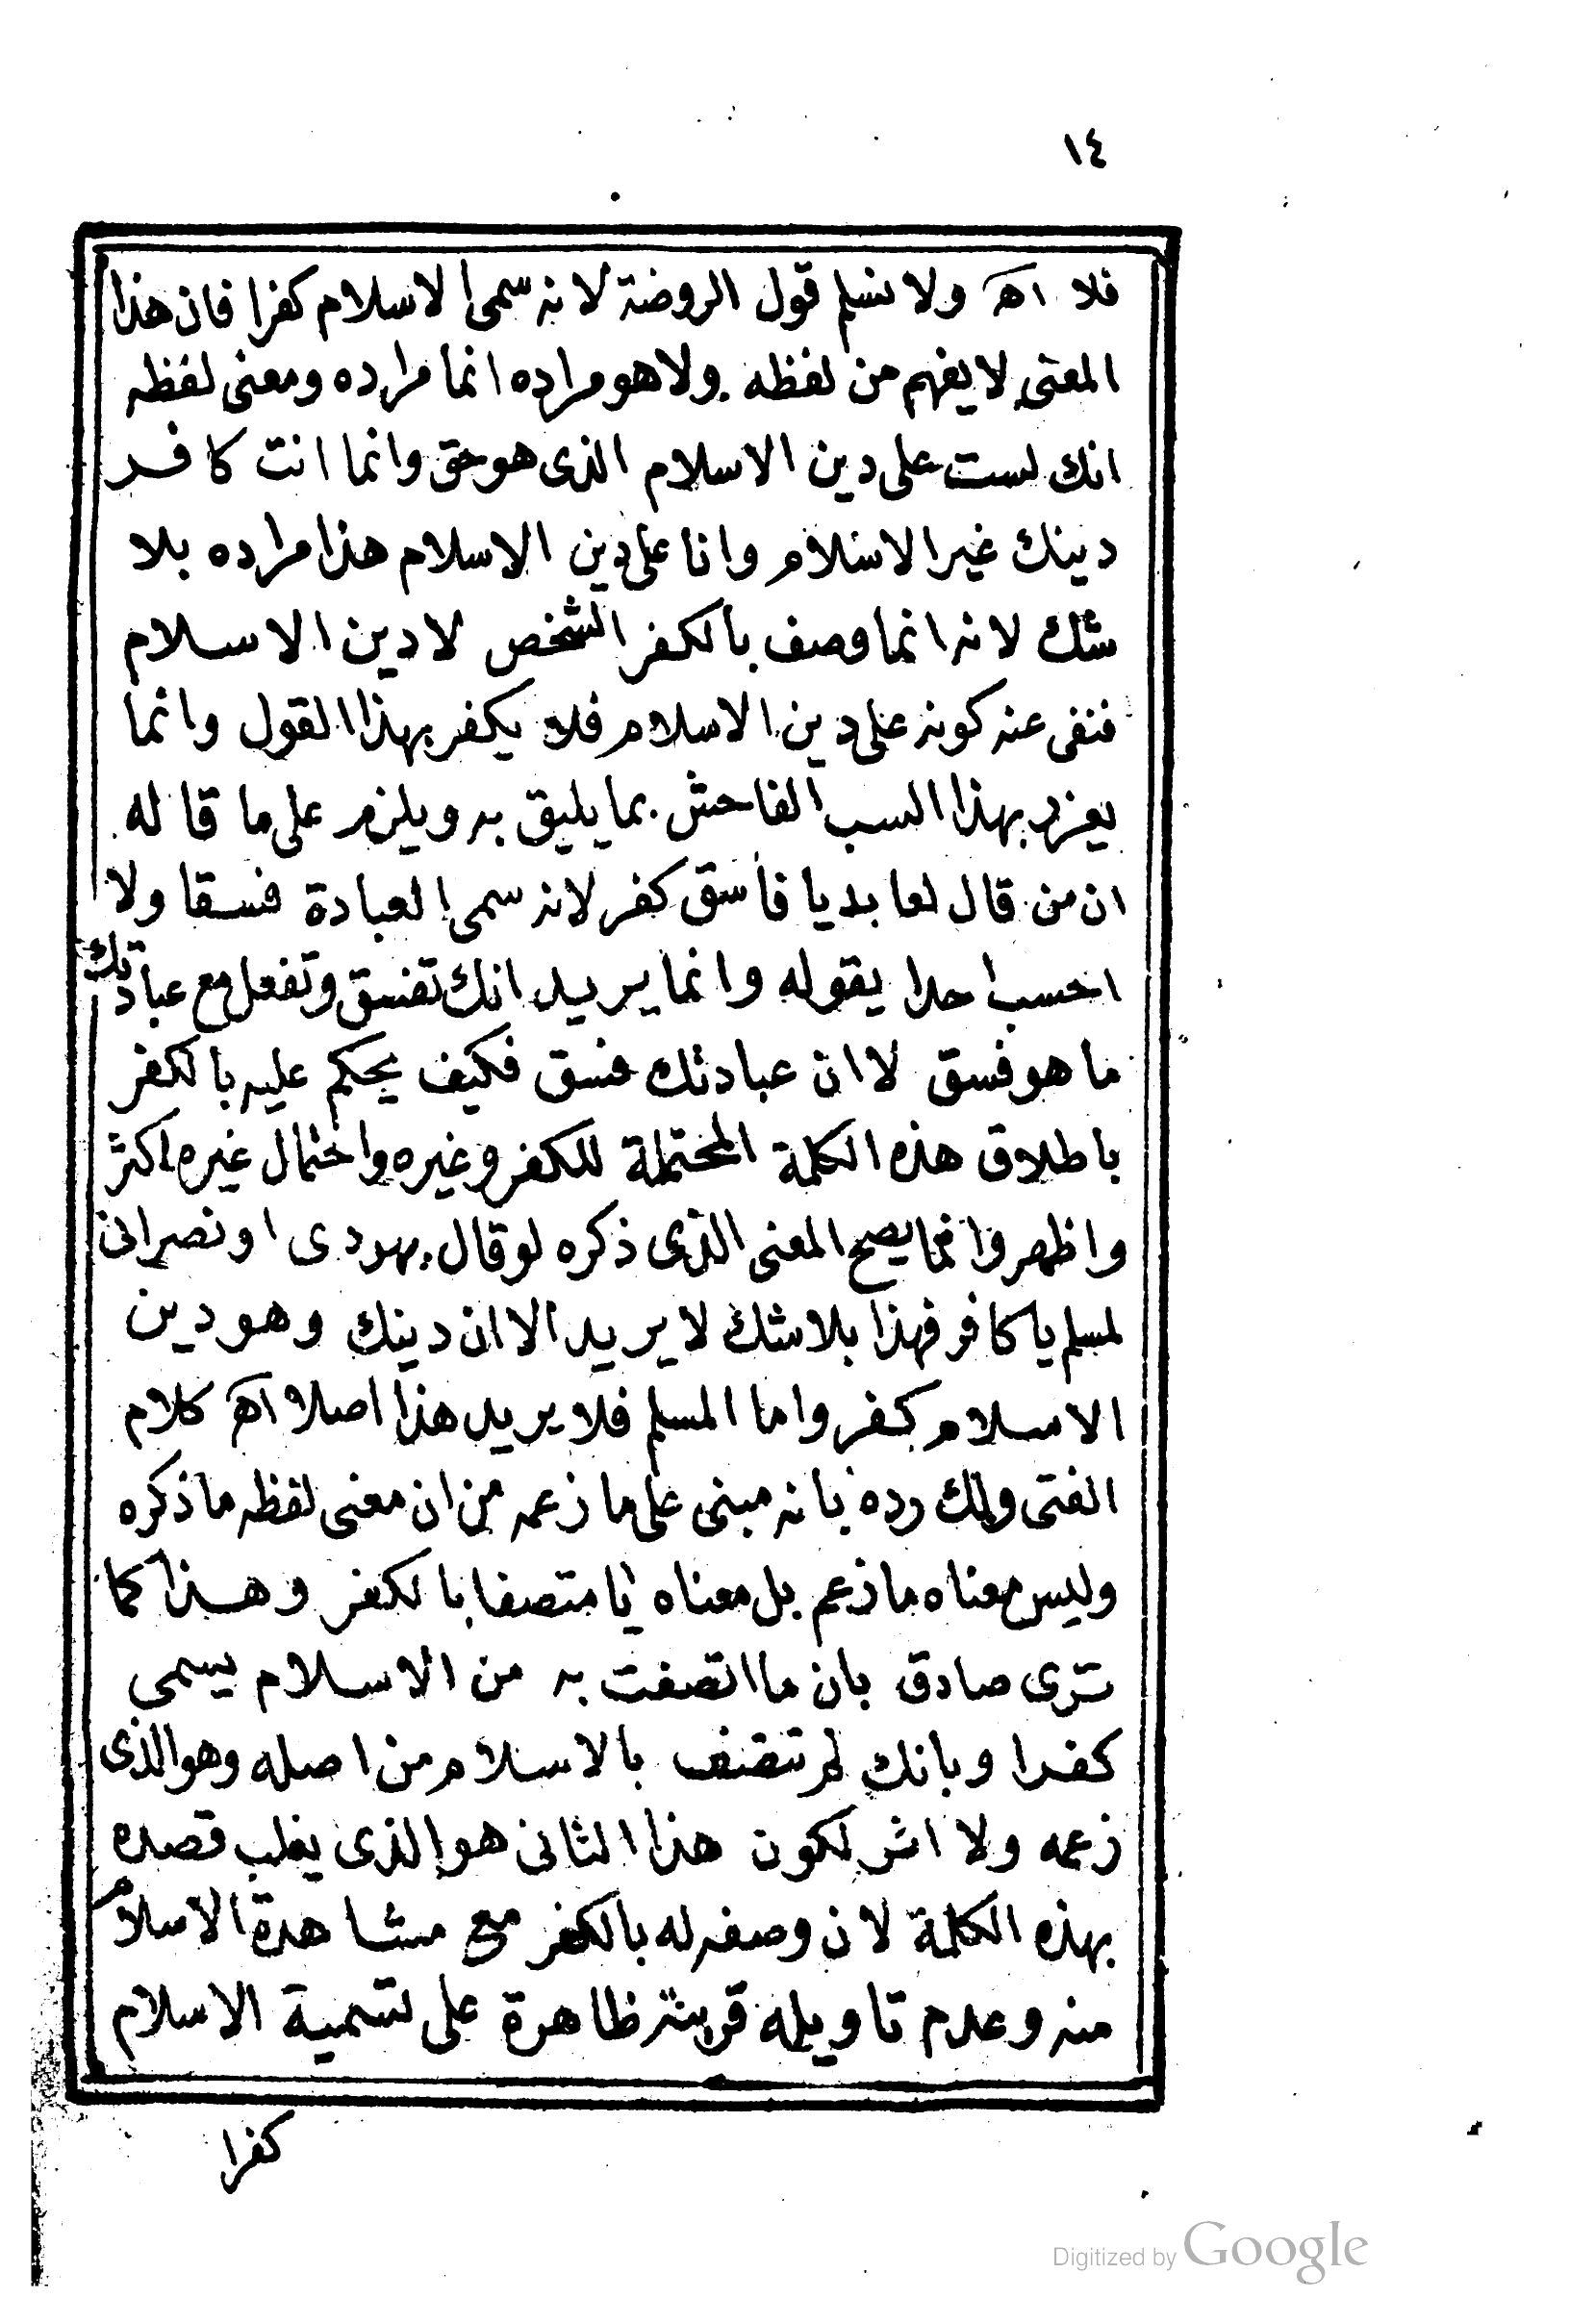 ١٤
فلا اه ولا نسلم قول الروضة لانه سمى الاسلام كفرا فان هذا
المعنى لا يفهم من لفظه ولا هو مراده انما مراده ومعنى لفظه
انك لست على دين الاسلام الذى هو حق وانما انت كافر
دينك غير الاسلام وانا على دين الاسلام هذا مراده بلا
شك لانه انما وصف بالكفر الشخص لا دين الاسلام
فنفى عنه كونه على دين الاسلام فلا يكفر بهذا القول وانما
يعزر بهذا السب الفاحش بما يليق به ويلزم على ما قاله
ان من قال لعابد يا فاسق كفر لانه سمى العبادة فسقا ولا
احسب احدا يقوله وانما يريد انك تفسق وتفعل مع عبادتك
ما هو فسق لا ان عبادتك فسق فكيف يحكم عليه بالكفر
باطلاق هذه الكلمة المحتملة للكفر وغيره واحتمال غيره اكثر
واظهر وانما يصح المعنى الذى ذكره لو قال يهودى او نصرانى
لمسلم يا كافر فهذا بلا شك لا يريد الا ان دينك وهو دين
الاسلام كفر واما المسلم فلا يريد هذا اصلا اه كلام
الفتى ولك رده بانه مبنى على ما زعمه من ان معنى لفظه ما ذكره
وليس معناه ما زعم بل معناه يا متصفا بالكفر وهذا كما
ترى صادق بان ما اتصفت به من الاسلام يسمى
كفرا وبانك لم تتصف بالاسلام من اصله وهو الذى
زعمه ولا اثر لكون هذا الثانى هو الذى يغلب قصده
بهذه الكلمة لان وصفه له بالكفر مع مشاهدة الاسلام
منه وعدم تاويله قرينة ظاهرة على تسمية الاسلام
كفرا
Digitized by Google